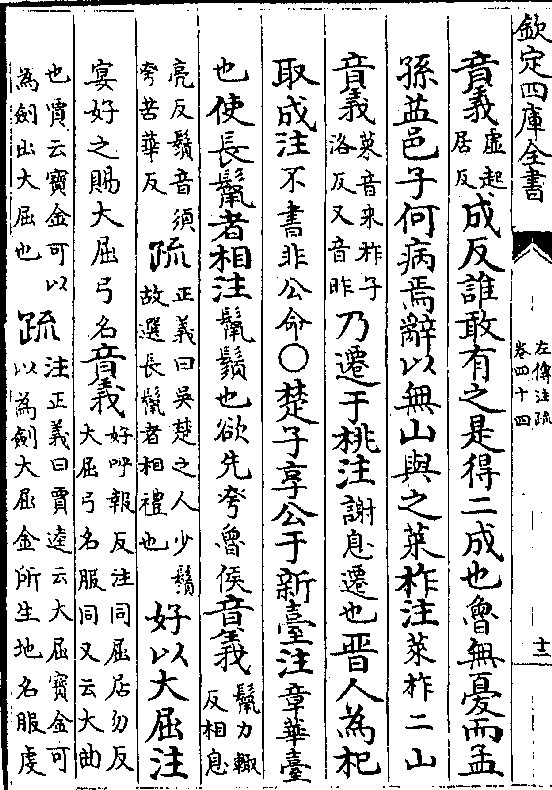 欽定四庫全書 左傳注疏 卷四十四 十二
音義虛起居反成反誰敢有之是得二成也魯無憂而孟
孫益邑子何病焉辭以無山與之萊柞注萊柞二山
音義萊音來柞子洛反又音昨乃遷于桃注謝息遷也晉人為杞
取成注不書非公命○楚子享公于新臺注章華臺
也使長鬛者相注鬛鬚也欲先夸魯侯音義鬛力輙反相息
亮反鬚音須夸苦華反疏正義曰吳楚之人少鬚故選長鬛者相禮也好以大屈注
宴好之賜大屈弓名音義好呼報反注同屈居勿反大屈弓名服同又云大曲
也賈云寶金可以為劍出大屈也疏注正義曰賈逵云大屈寶金可以為劍大屈金所生地名服虔